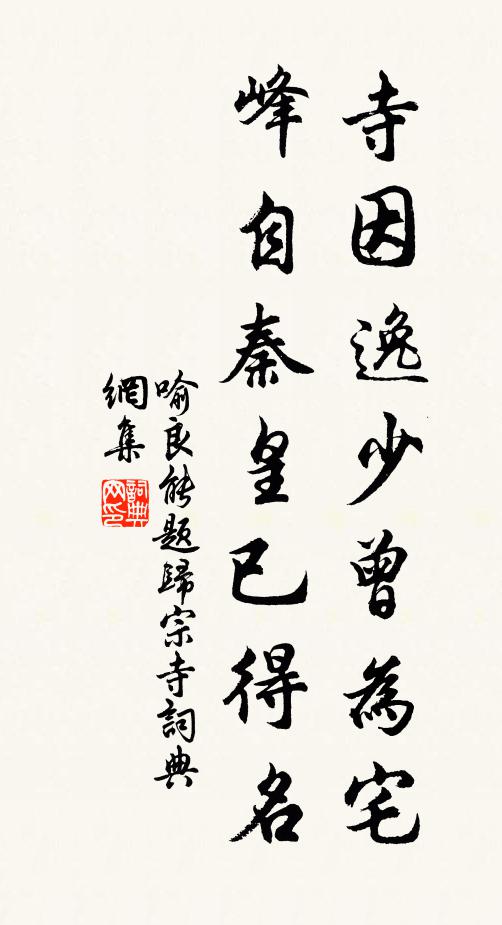 寺因逸少曾為宅
峰自秦皇已得名
喻良能題歸宗寺詞典
網集
詞典網印